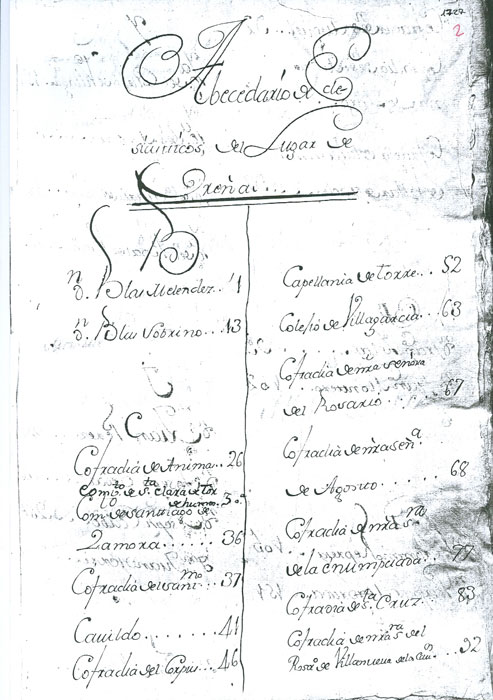 1727
2
Abecedario de Ecle
siasticos, del Lugar de
Oreña
B
D.n Blas Melendez.. 11
D.n Blas Sobrino... 13
C
Cofradia de Animas.. 26
Comb.to de S.ta Clara de Tor
Com.to de Santiago de
Zamora....... 36
Cofradia del Sant.mo.. 37
Cavildo....... 41
Cofradia del Corpus.. 46
Capellania de torre.. 52
Colejio de Villagarcia.. 63
Cofradia de nra señora
del Rosario... 67
Cofradia de nra señ.a
de Agosto.... 68
Cofradia de nra S.ra
de la
77
Cofradia de S.ta Cruz. 83
Cofradia de nra S.ra del
Ros.o de Villanueva de la
92